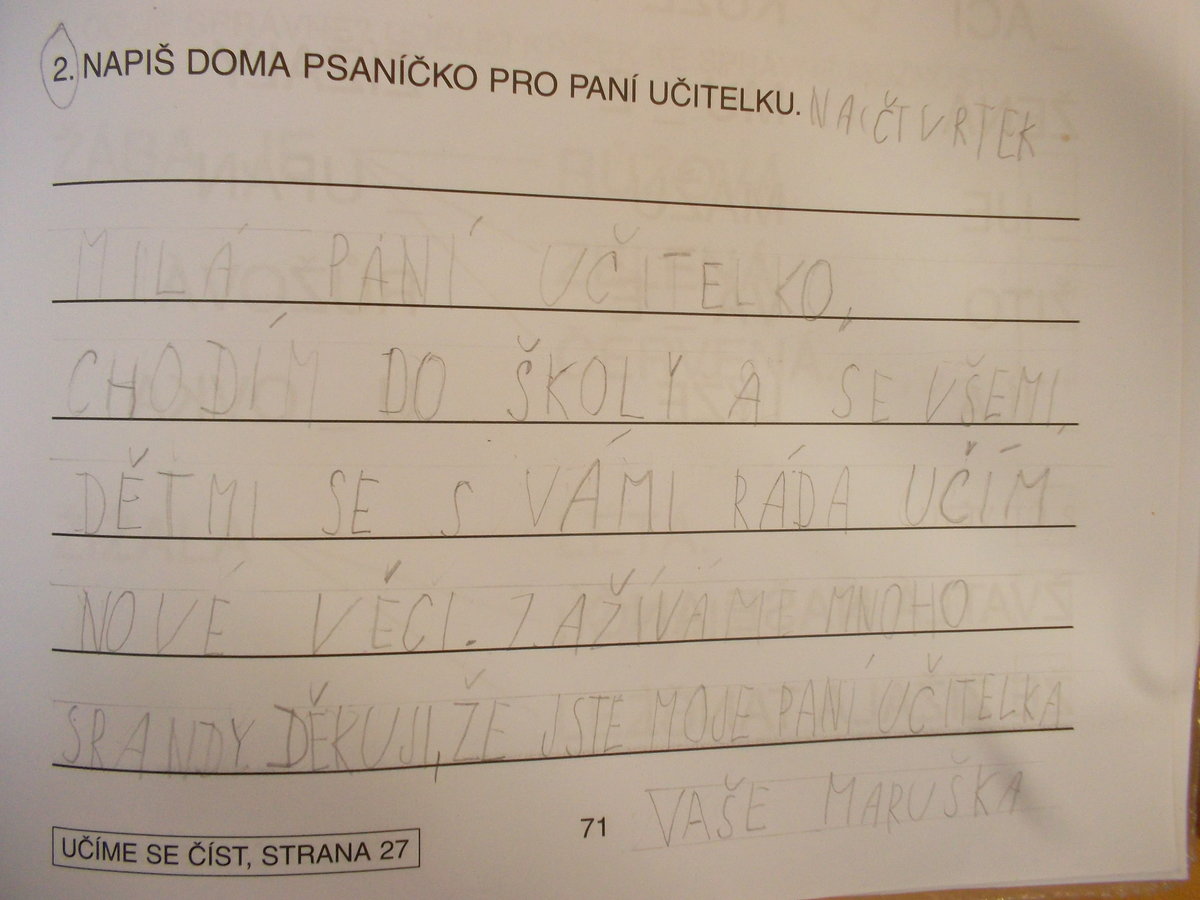 2. NAPIŠ DOMA PSANÍČKO PRO PANÍ UČITELKU. NA ČTVRTEK
MILÁ PANÍ UČITELKO,
CHODÍM DO ŠKOLY A SE VŠEMI
DĚTMI SE S VÁMI RÁDA UČÍM
NOVÉ VĚCI. ZAŽÍVÁME MNOHO
SRANDY. DĚKUJI, ŽE JSTE MOJE PANÍ UČITELKA
VAŠE MARUŠKA
71
UČÍME SE ČÍST, STRANA 27